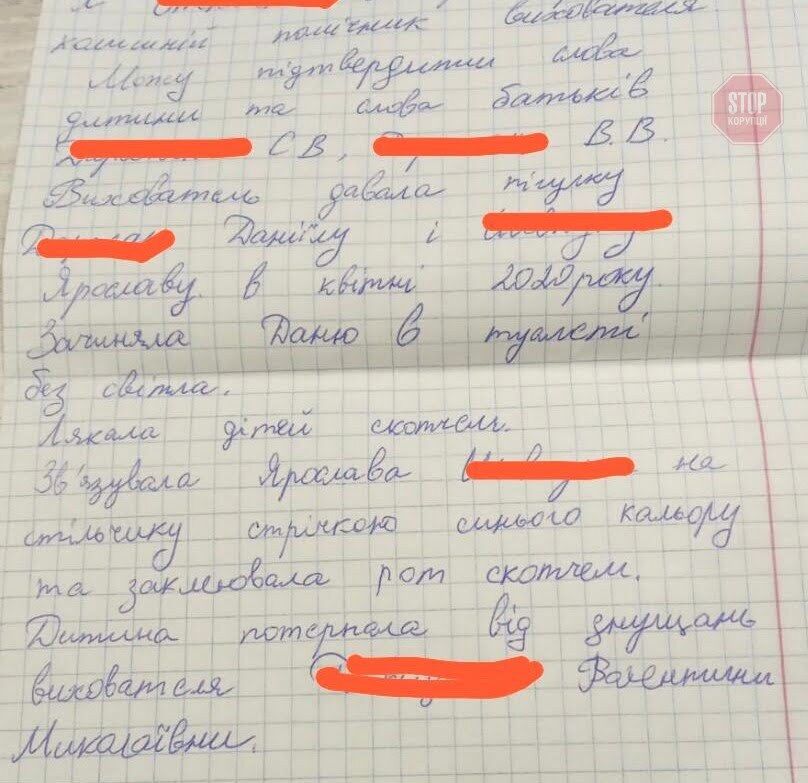 Я
колишній помічник вихователя.
Можу підтвердити слова
дитини та слова батьків
С В, В. В.
Вихователь давала пігулку
Даніїлу і
Ярославу в квітні 2020 року.
Зачиняла Даню в туалеті
без світла.
Лякала дітей скотчем.
Зв'язувала Ярослава на
стільчику стрічкою синього кальору
та заклеювала рот скотчем.
Дитина потерпала від знущань
вихователя Валентини
Миколаївни.
STOP
КОРУПЦІЇ